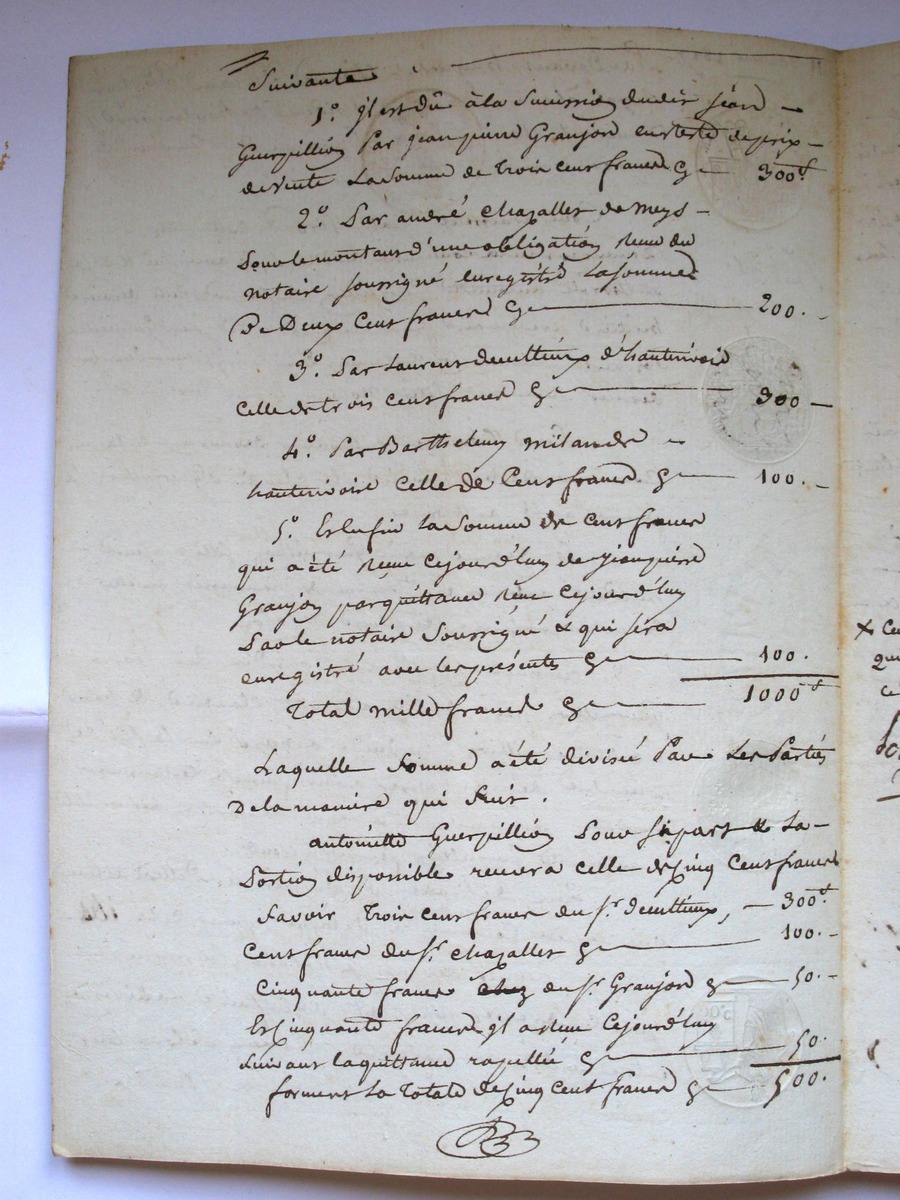 Suivante
1.° il est dû à la Succession dudit jean
Guerpillion Par jean pierre Granjon en reste de prix
de vente La Somme de Trois cent francs 300.f
2.° Par andré chazallet de meys
Pour le montant d'une obligation reçue du
notaire soussigné enregistré La Somme
De Deux Cent francs 200.
3.° Par Laurent decultieux d'hauterivoire
celle de trois cent francs 300
4.° Par Barthelemy milan de
hauterivoire celle de Cent francs 100.
5.° Et enfin La Somme de cent francs
qui a été reçue cejourd'huy de jean pierre
Granjon par quittance reçue cejourd'huy
Par le notaire Soussigné & qui sera
enregistré avec les présentes 100.
Total mille francs 1000.f
Laquelle Somme a été divisée Par Les Parties
De la manière qui Suit.
antoinette Guerpillion Pour sa part & La
Portion disponible recevra celle de Cinq Cent francs
Savoir Trois cent francs du S.r decultieux, 300.f
Cent francs du S.r chazallet 100.
Cinquante francs du S.r Granjon 50.
Et Cinquante francs qu'il a reçu cejourd'huy
Suivant la quittance rapellée 50.
forment La Totale de Cinq Cent francs 500.